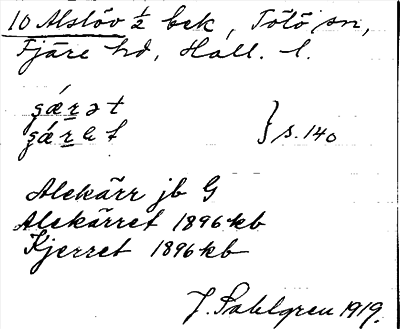 10 Alslöv ½ bek, Tölö sn,
Fjäre hd, Hall. l.
gǽrət
gǽret } s. 140
Alekärr jb G
Alekärret 1896 kb
Kjerret 1896 kb
J. Sahlgren 1919.